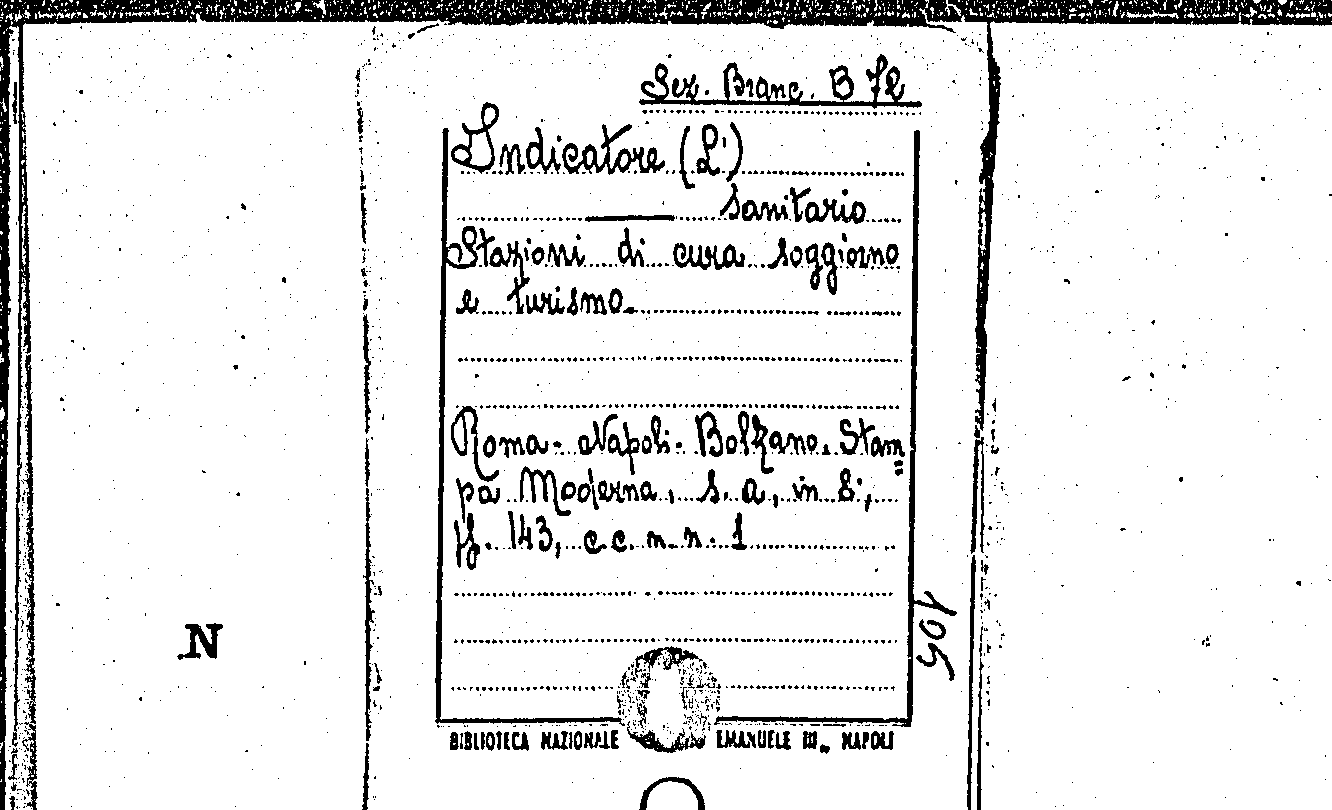 Sez. Branc. B 72
Indicatore (L')
sanitario
Stazioni di cura soggiorno
e turismo.
Roma - Napoli - Bolzano, Stam=
pa Moderna, s. a, in 8°,
ff. 143, c.c. n. n. 1
105
N
BIBLIOTECA NAZIONALE EMANUELE III„ NAPOLI